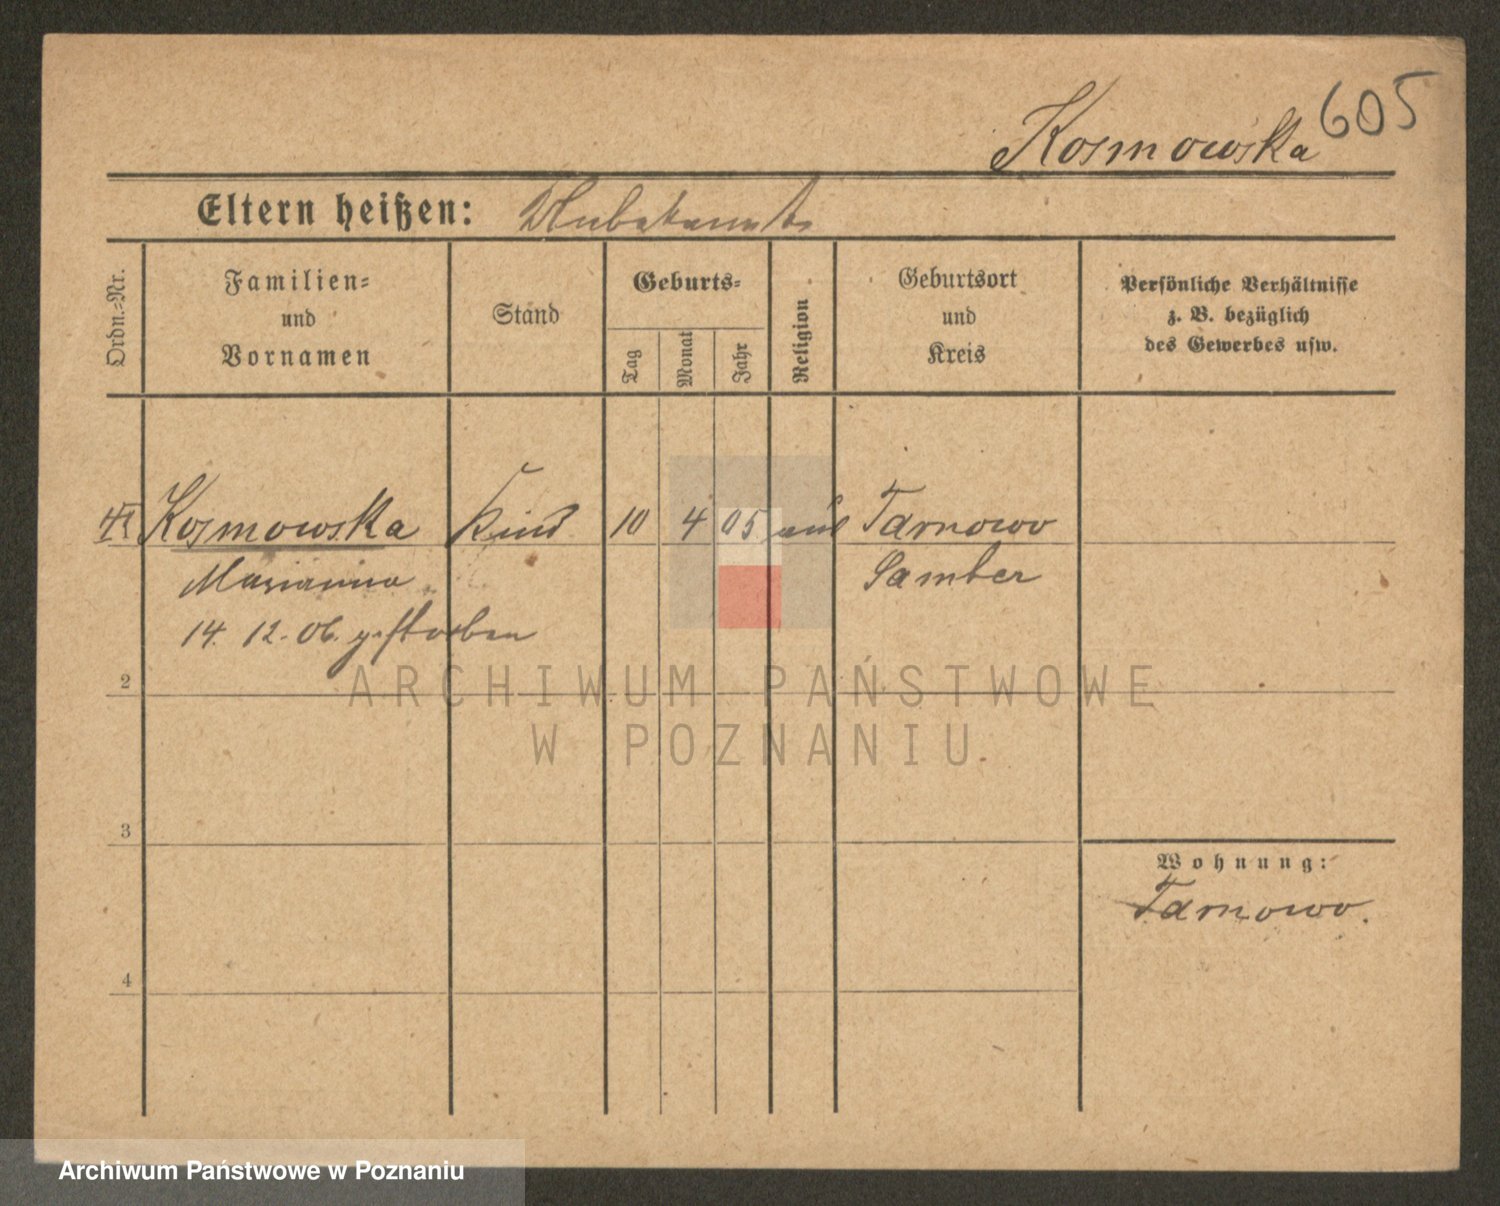 605
Kosmowska
Eltern heißen: Unbekannt
Ordn.-Nr.
Familien-
und
Vornamen
Stand
Geburts-
Tag
Monat
Jahr
Religion
Geburtsort
und
Kreis
Persönliche Verhältnisse
z. B. bezüglich
des Gewerbes usw.
Kosmowska Kind 10 4 05 Tarnowo
Marianna Samter
14. 12. 06. gestorben
2
3
4
Wohnung:
Tarnowo.
ARCHIWUM PAŃSTWOWE
W POZNANIU
Archiwum Państwowe w Poznaniu